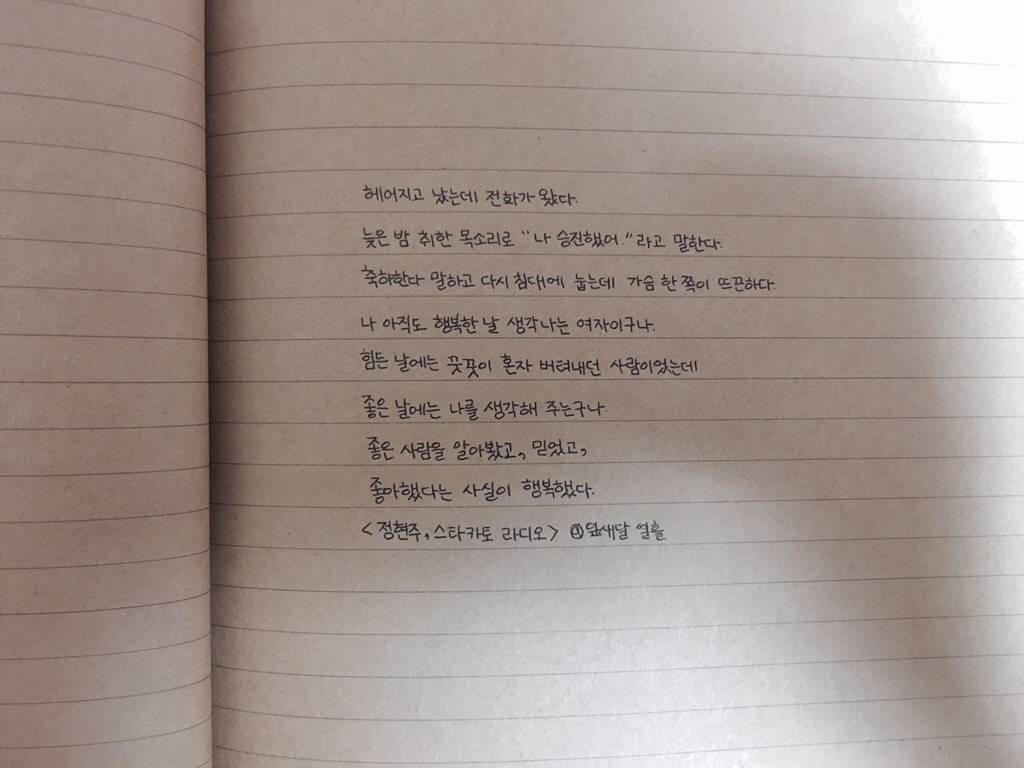 헤어지고 났는데 전화가 왔다.
늦은 밤 취한 목소리로 "나 승진했어." 라고 말한다.
축하한다 말하고 다시 침대에 눕는데 가슴 한 쪽이 뜨끈하다.
나 아직도 행복한 날 생각나는 여자이구나.
힘든 날에는 꿋꿋이 혼자 버텨내던 사람이었는데
좋은 날에는 나를 생각해 주는구나.
좋은 사람을 알아봤고, 믿었고,
좋아했다는 사실이 행복했다.
<정현주, 스타카토 라디오> ⓐ잎새달 열흘